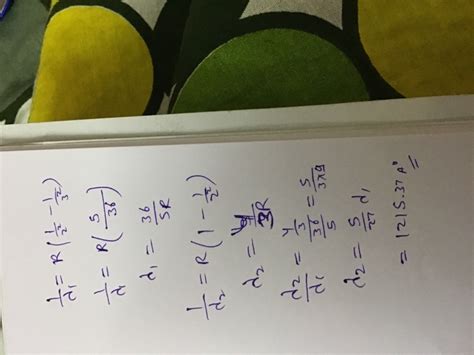 1/λ₁ = R(1/2² - 1/3²)
1/λ = R(5/36)
λ₁ = 36/5R
1/λ₂ = R(1 - 1/2²)
λ₂ = 4/3R
λ₂/λ₁ = (4/3)/(36/5) = 5/3×9
λ₂ = 5/27 λ₁
= 1215.37 A°